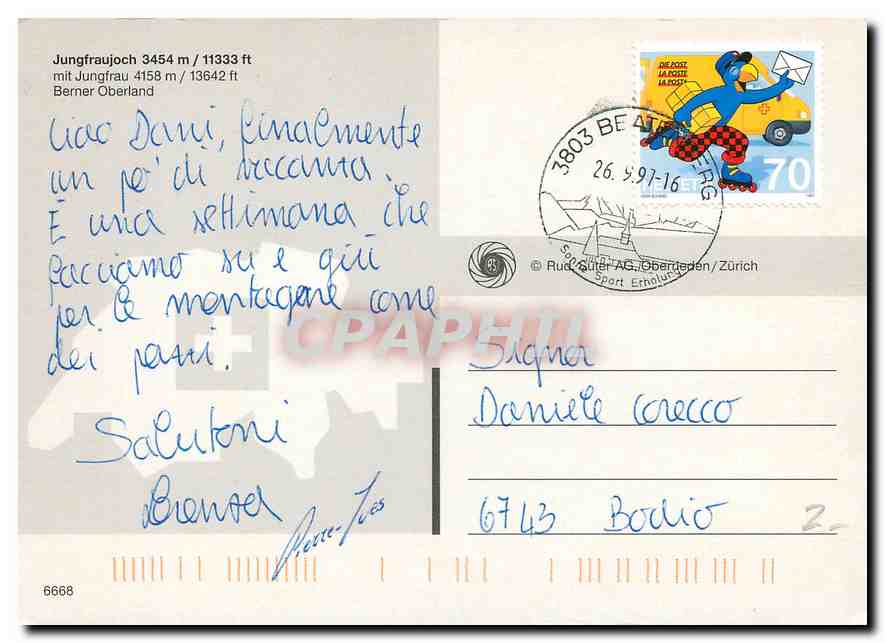 Jungfraujoch 3454 m / 11333 ft
mit Jungfrau 4158 m / 13642 ft
Berner Oberland
Ciao Dani, finalmente
un po' di vacanza.
È una settimana che
facciamo su e giù
per le montagne come
dei pazzi.
Salutoni
Pierre-Yves
6668
DIE POST
LA POSTE
LA POSTA
HELVETIA 70
3803 BEATENBERG
26.9.97-16
Sonne Sport Erholung
© Rud. Suter AG, Oberrieden / Zürich
CPAPHIL
Signor
Daniele Corecco
6743 Bodio
2.-